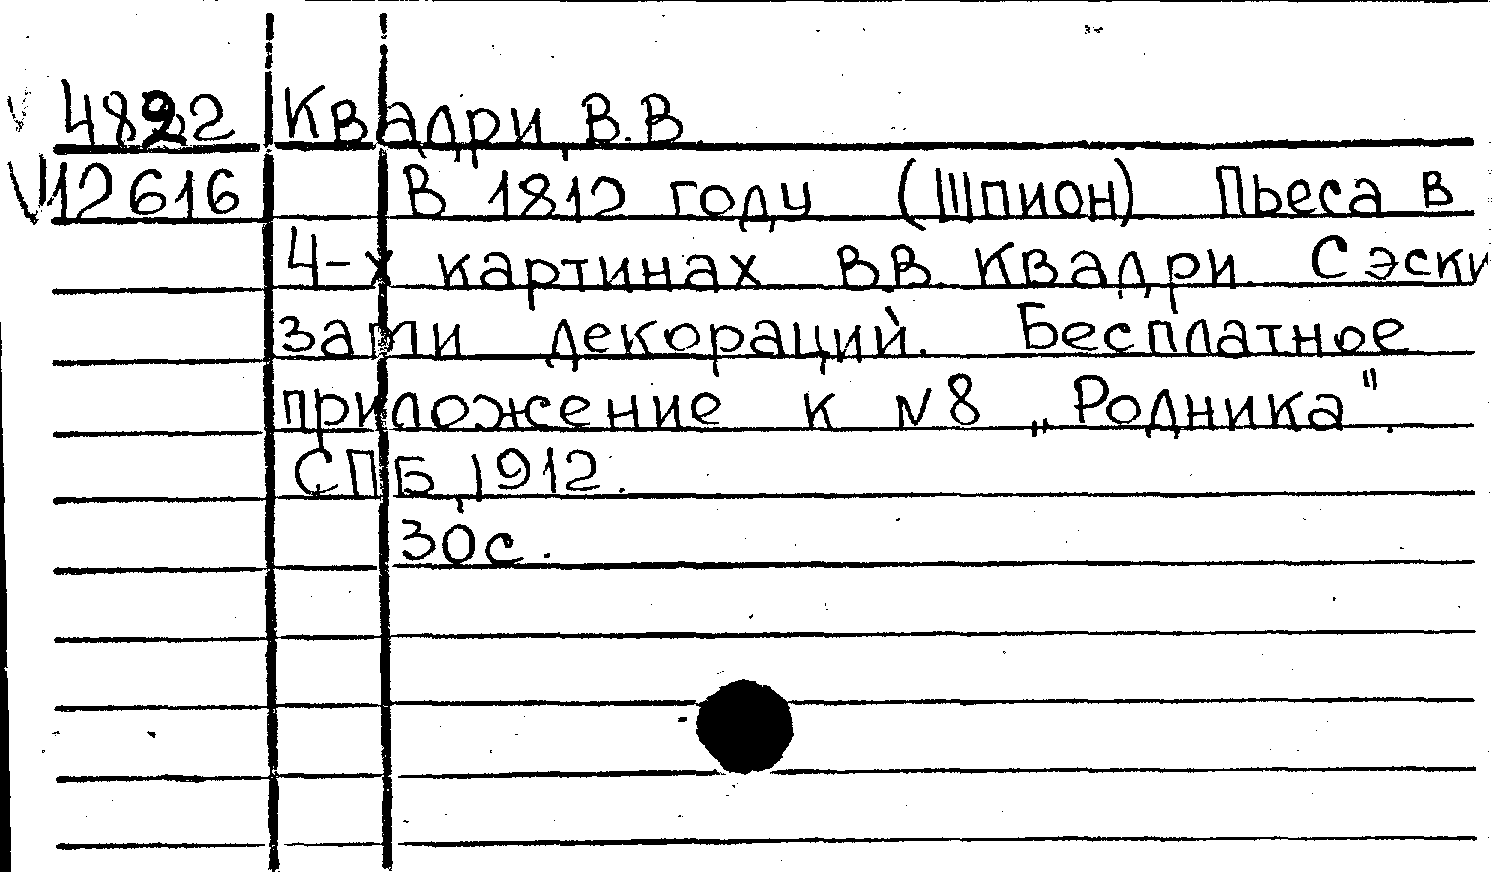 4892 Квадри, В.В.
12616 В 1812 году (Шпион) Пьеса в
4-х картинах В.В. Квадри. С эски
зами декораций. Бесплатное
приложение к N8 „Родника".
СПБ, 1912.
30с.